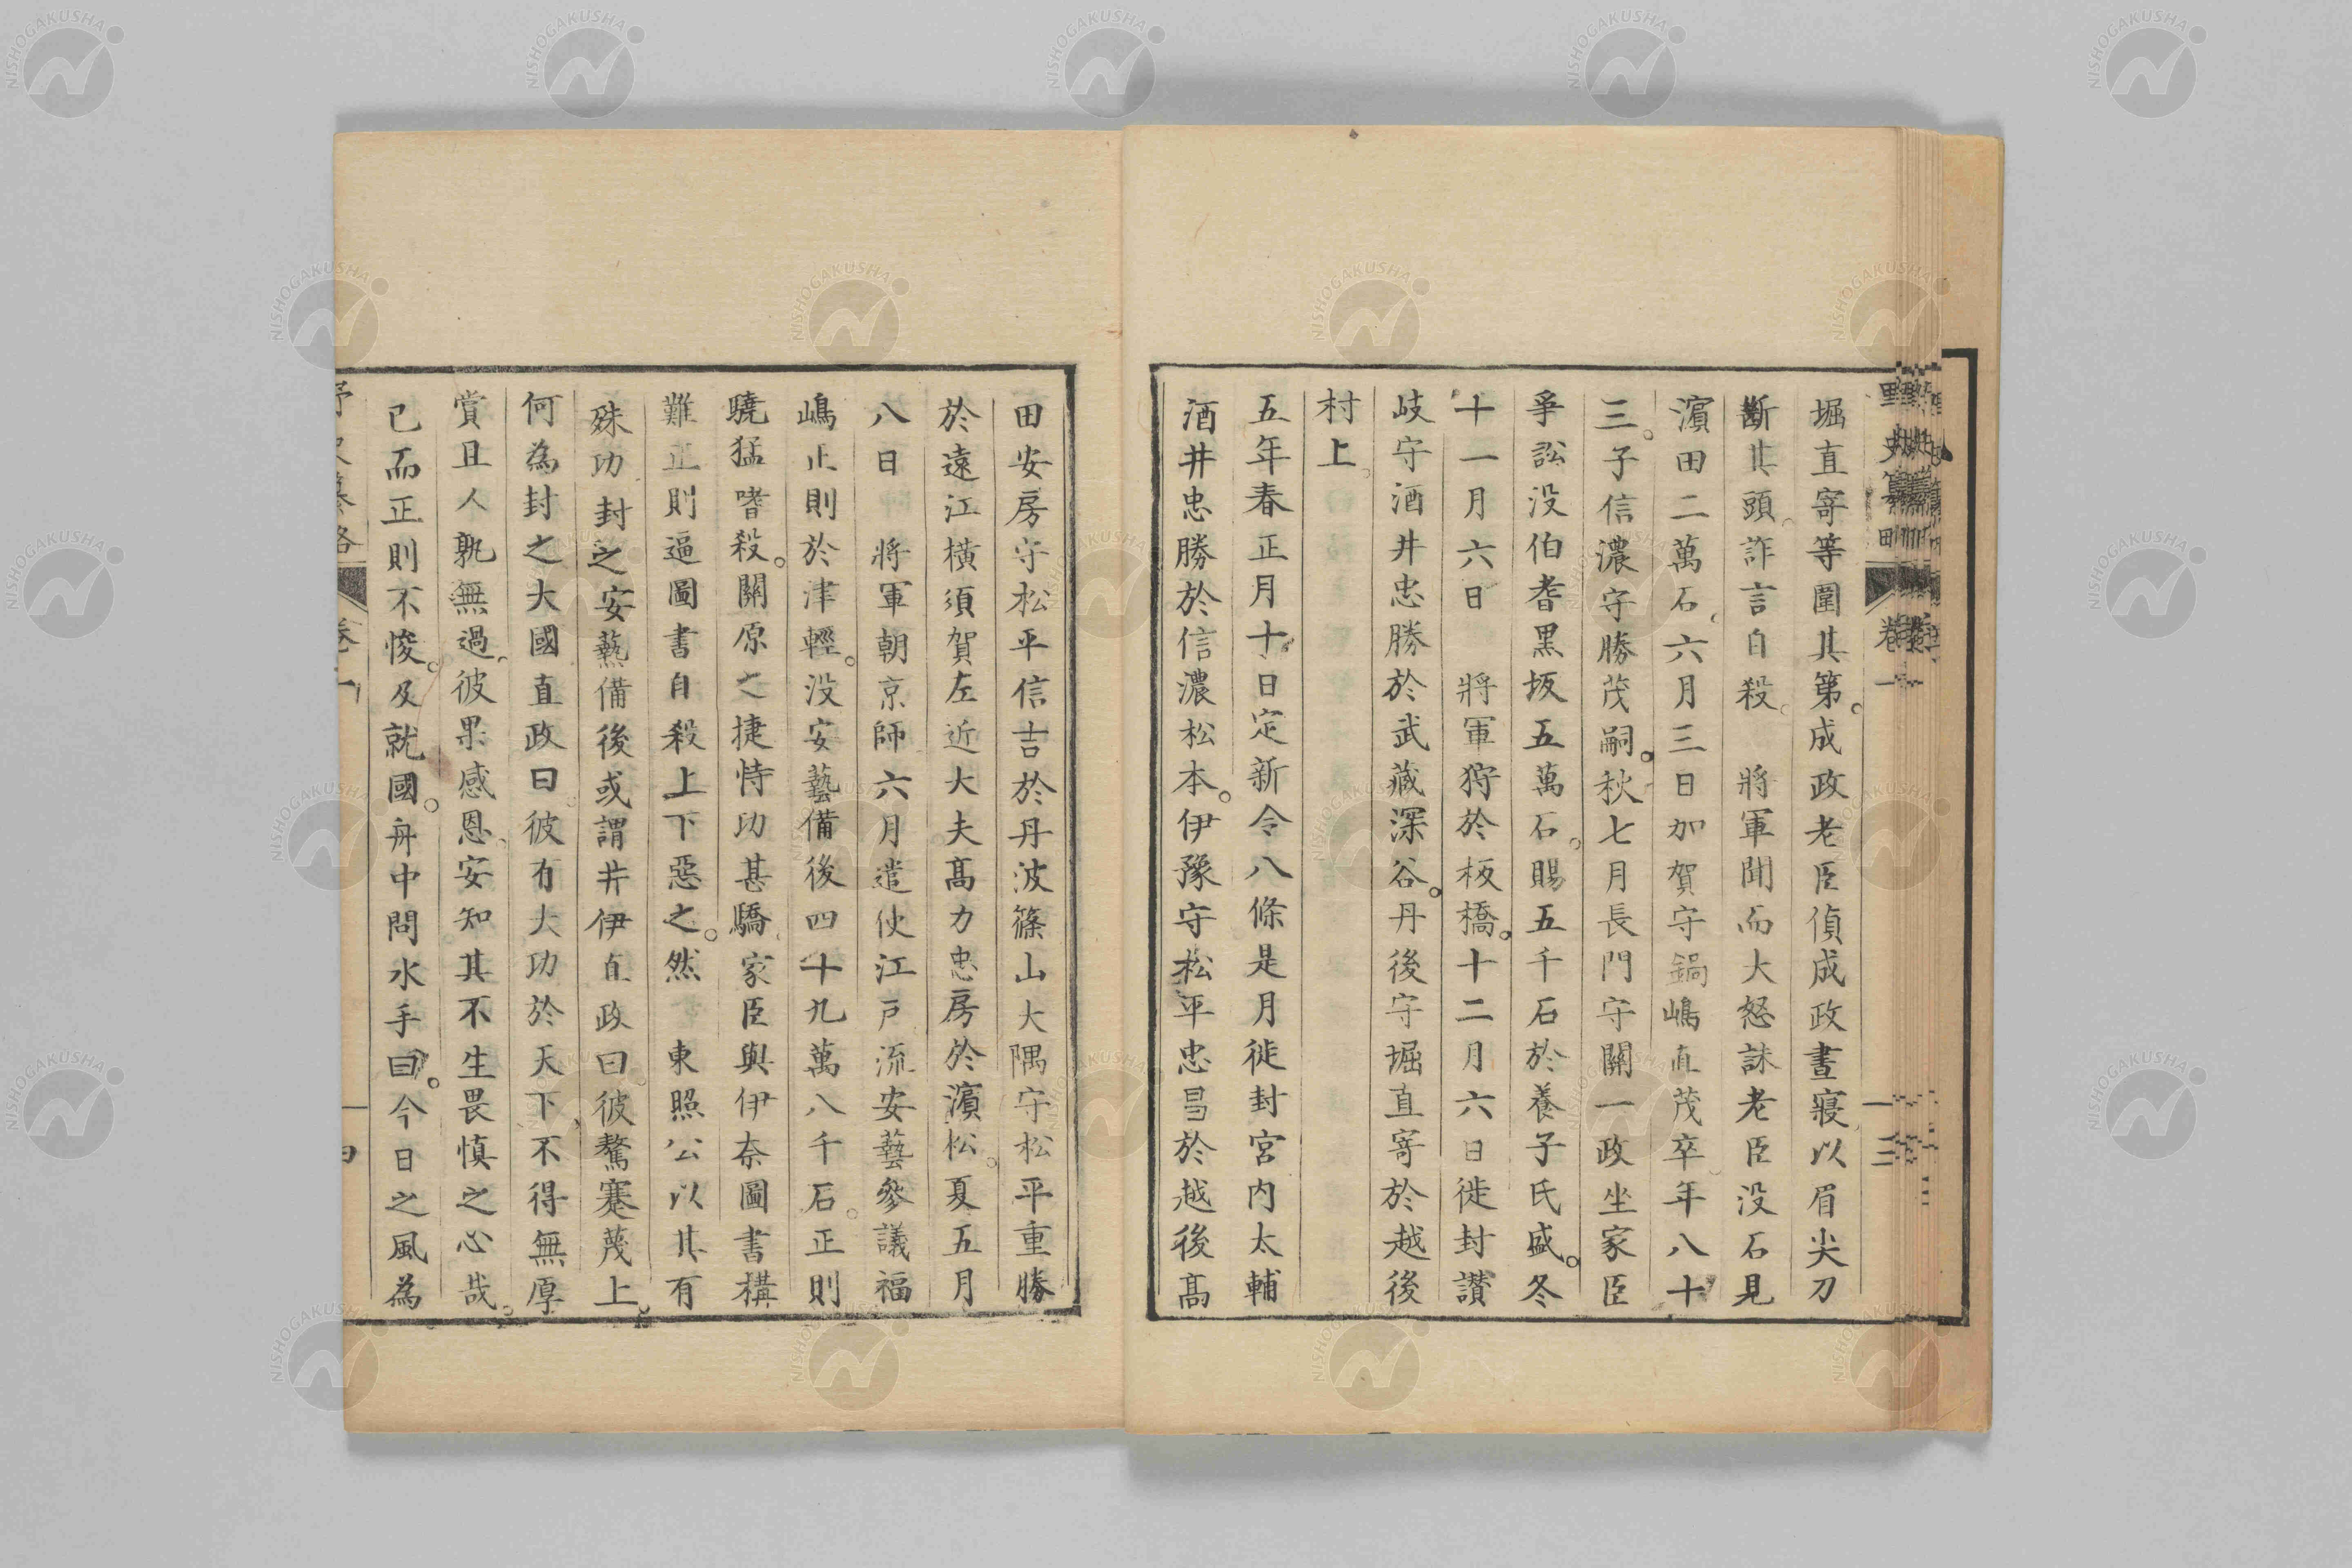 堀直寄等圍其第。成政老臣偵成政晝寢以眉尖刀
斷其頭。詐言自殺。　將軍聞而大怒誅老臣没石見
濵田二萬石。六月三日加賀守鍋嶋直茂卒年八十
三。子信濃守勝茂嗣。秋七月長門守關一政坐家臣
爭訟没伯耆黑坂五萬石。賜五千石於養子氏盛。冬
十一月六日　將軍狩於板橋。十二月六日徙封讃
岐守酒井忠勝於武藏深谷。丹後守堀直寄於越後
村上。
五年春正月十日定新令八條是月徙封宮内太輔
酒井忠勝於信濃松本。伊豫守松平忠昌於越後髙
田安房守松平信吉於丹波篠山大隅守松平重勝
於遠江橫須賀左近大夫髙力忠房於濵松。夏五月
八日　將軍朝京師六月遣使江戸流安藝參議福
嶋正則於津輕。没安藝備後四十九萬八千石。正則
驍猛嗜殺。關原之捷恃功甚驕家臣與伊奈圖書構
難正則逼圖書自殺上下惡之。然　東照公以其有
殊功封之安藝備後或謂井伊直政曰彼驁蹇蔑上。
何為封之大國直政曰彼有大功於天下不得無厚
賞且人孰無過彼果感恩安知其不生畏慎之心哉。
已而正則不悛。及就國。舟中問水手曰。今日之風為
卷一
一三
NISHOGAKUSHA